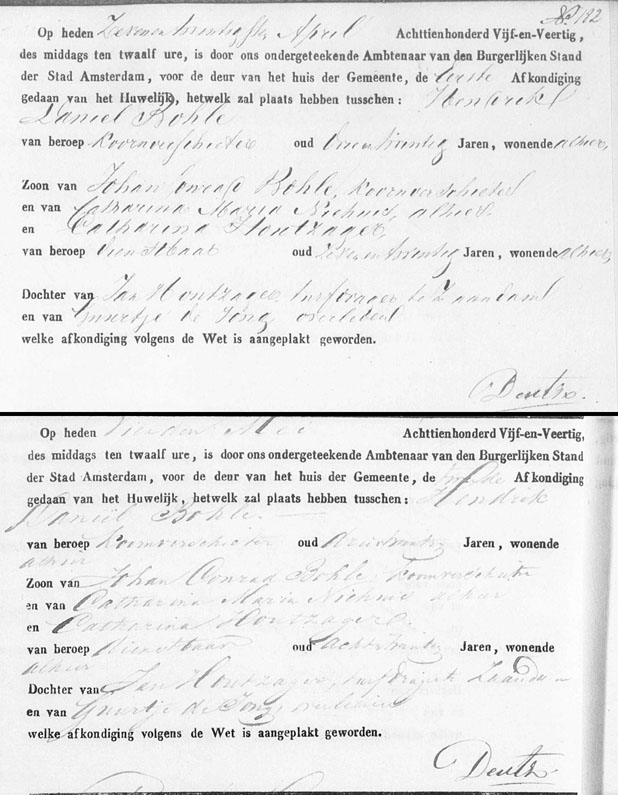 No. 192
Op heden Zevenentwintigsten April Achttienhonderd Vijf-en-Veertig,
des middags ten twaalf ure, is door ons ondergeteekende Ambtenaar van den Burgerlijken Stand
der Stad Amsterdam, voor de deur van het huis der Gemeente, de Eerste Afkondiging
gedaan van het Huwelijk, hetwelk zal plaats hebben tusschen: Hendrik
Daniel Bohle
van beroep Koornverschieter oud Drieentwintig Jaren, wonende alhier,
Zoon van Johan Conrad Bohle, Koornverschieter
en van Catharina Maria Niehuis, alhier
en Catharina Houtzager,
van beroep Dienstbaar oud Zevenentwintig Jaren, wonende alhier,
Dochter van Jan Houtzager turfdrager te Zaandam
en van Guurtje de Jong overleden
welke afkondiging volgens de Wet is aangeplakt geworden.
Deutz.
Op heden Vierden Mei Achttienhonderd Vijf-en-Veertig,
des middags ten twaalf ure, is door ons ondergeteekende Ambtenaar van den Burgerlijken Stand
der Stad Amsterdam, voor de deur van het huis der Gemeente, de Tweede Afkondiging
gedaan van het Huwelijk, hetwelk zal plaats hebben tusschen: Hendrik
Daniël Bohle
van beroep Koornverschieter oud drieentwintig Jaren, wonende
alhier
Zoon van Johan Conrad Bohle, Koornverschieter
en van Catharina Maria Niehuis alhier
en Catharina Houtzager
van beroep Dienstbaar oud achtentwintig Jaren, wonende
alhier
Dochter van Jan Houtzager, turfdrager te Zaandam
en van Guurtje de Jong overleden
welke afkondiging volgens de Wet is aangeplakt geworden.
Deutz